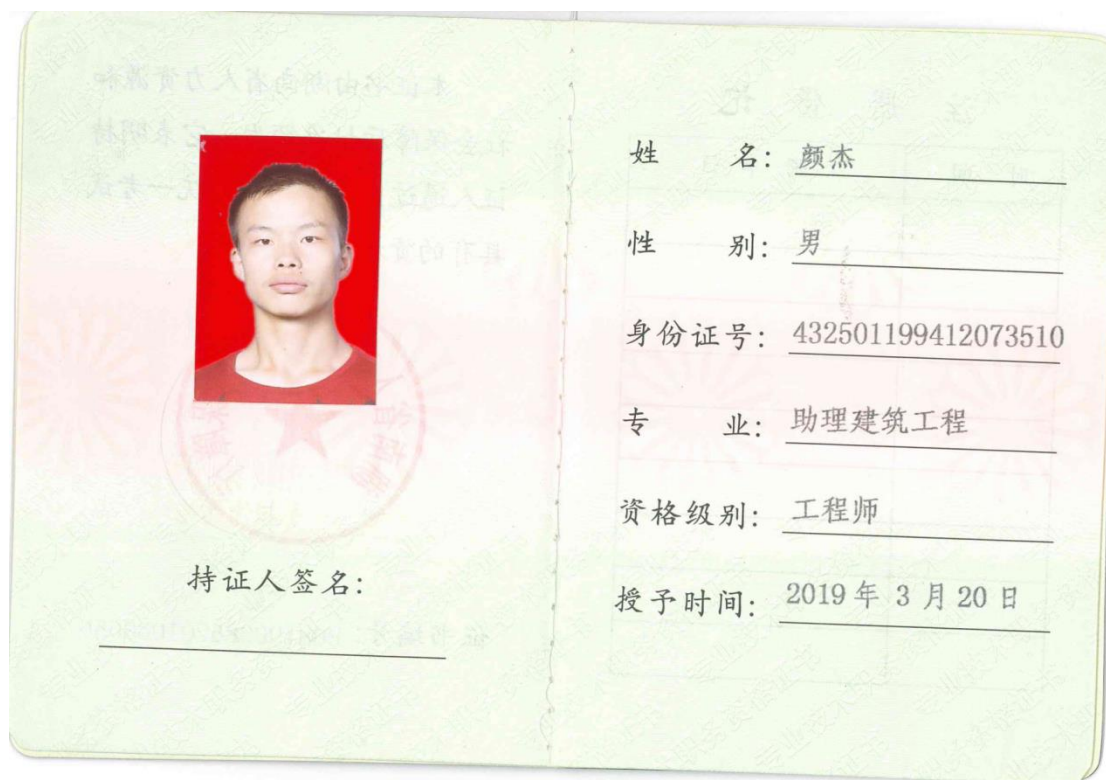 持证人签名:
姓 名: 颜杰
性 别: 男
身份证号: 432501199412073510
专 业: 助理建筑工程
资格级别: 工程师
授予时间: 2019 年 3 月 20 日